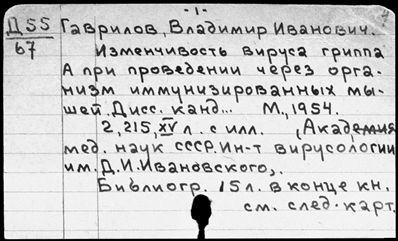 - 1 -
Д55 Гаврилов, Владимир Иванович.
67 Изменчивость вируса гриппа
А при проведении через орга-
низм иммунизированных мы-
шей. Дисс. канд... М., 1954.
2, 215, XV л. с илл. (Академия
мед. наук СССР. Ин-т вирусологии
им. Д. И. Ивановского).
Библиогр. 15 л. в конце кн.
см. след. карт.